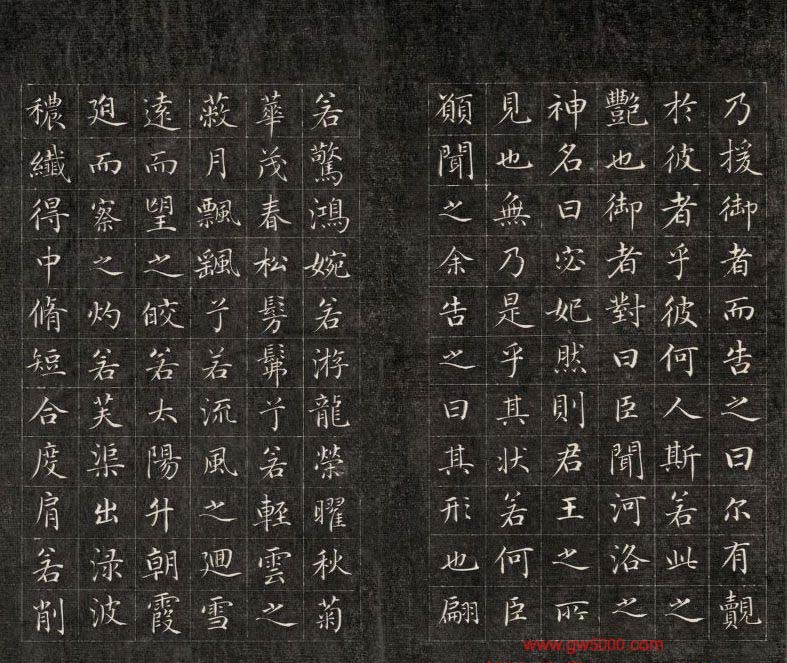 乃援御者而告之曰尔有覿
於彼者乎彼何人斯若此之
艷也御者對曰臣聞河洛之
神名曰宓妃然則君王之所
見也無乃是乎其状若何臣
願聞之余告之曰其形也翩
若驚鴻婉若游龍榮曜秋菊
華茂春松髣髴兮若輕雲之
蔽月飄颻兮若流風之廻雪
遠而望之皎若太陽升朝霞
廹而察之灼若芙渠出渌波
穠纖得中脩短合度肩若削
www.gw5000.com